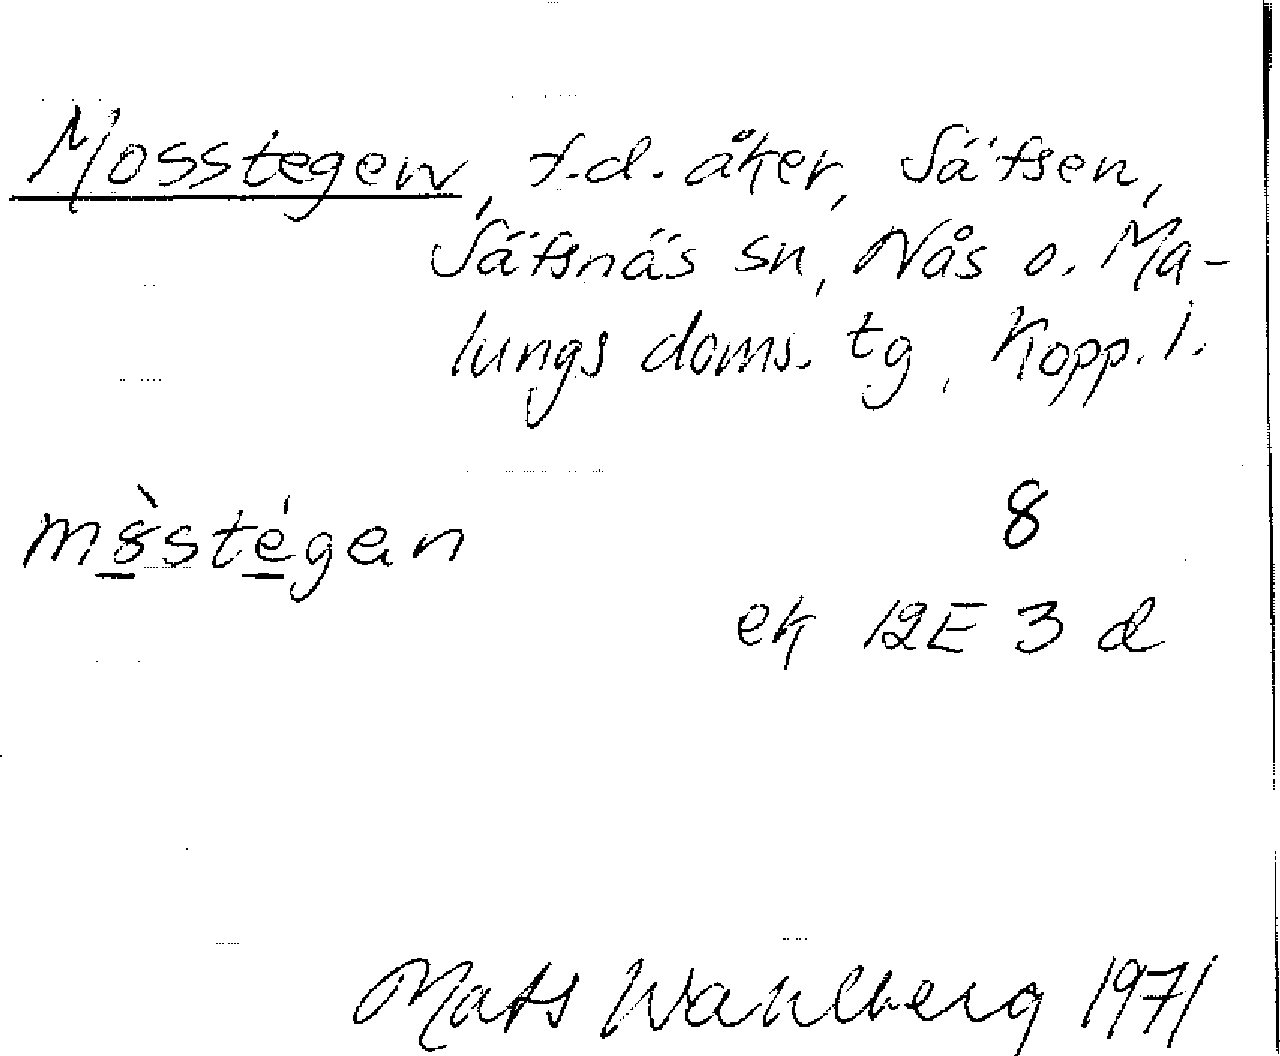 Mosstegen, f.d. åker, Säfsen,
Säfsnäs sn, Nås o. Ma-
lungs doms. tg, Kopp. l.
8
mòstégan
ek 12E 3 d
Mats Wahlberg 1971